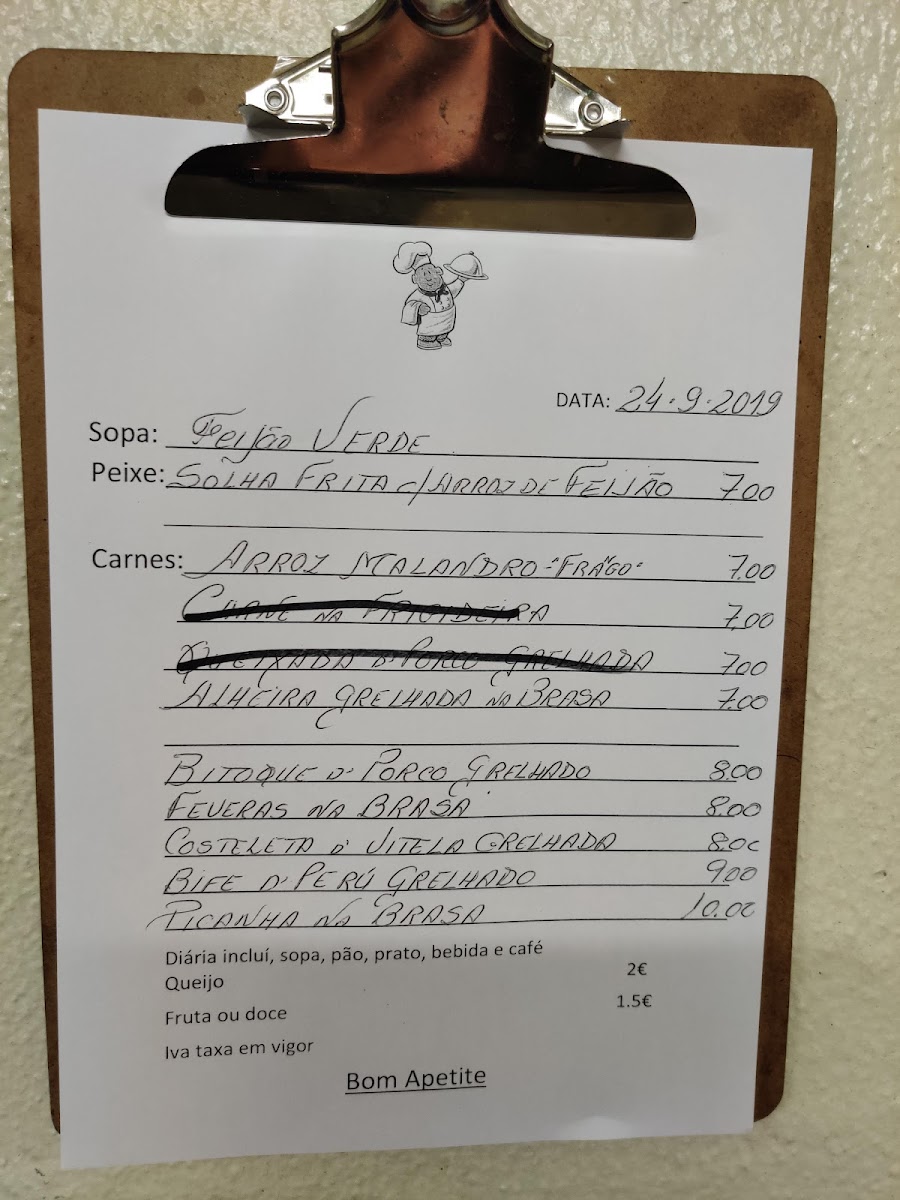 DATA: 24.9.2019
Sopa: Feijão VERDE
Peixe: SOLHA FRITA c/ARROZ DE FEIJÃO 7.00
Carnes: ARROZ MALANDRO "FRÃGO" 7.00
CARNE NA FRIGIDEIRA 7.00
QUEIXADA D'PORCO GRELHADA 7.00
ALHEIRA GRELHADA NA BRASA 7.00
BITOQUE D'PORCO GRELHADO 8.00
FEVERAS NA BRASA 8.00
COSTELETA D'VITELA GRELHADA 8.00
BIFE D'PERÚ GRELHADO 9.00
PICANHA NA BRASA 10.00
Diária incluí, sopa, pão, prato, bebida e café
Queijo 2€
Fruta ou doce 1.5€
Iva taxa em vigor
Bom Apetite